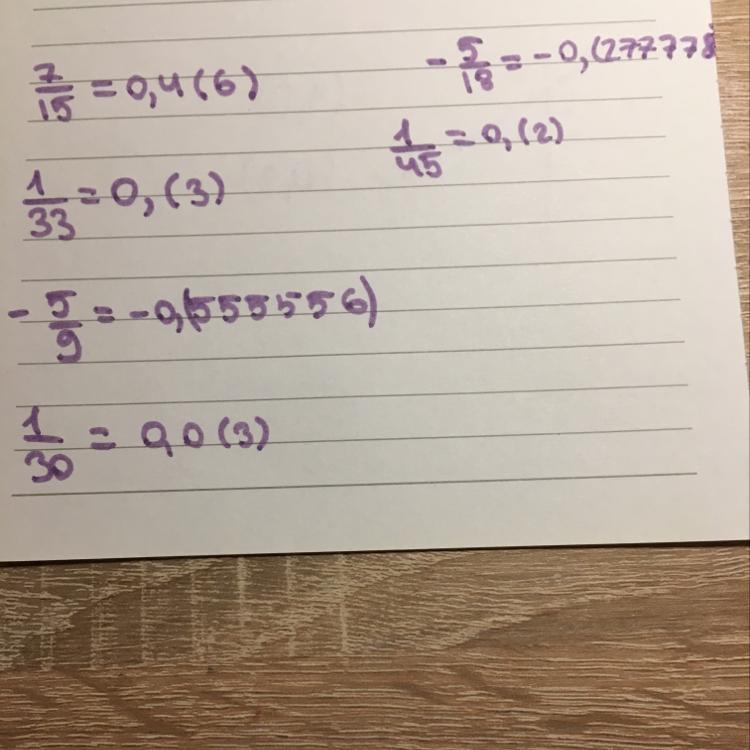 7/15 = 0,4(6)
1/33 = 0,(3)
- 5/9 = -0,(555556)
1/30 = 0,0(3)
- 5/18 = -0,(277778
1/45 = 0,(2)